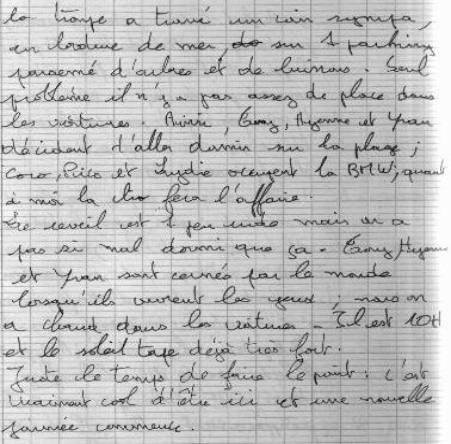 la troupe a trouvé un coin sympa,
en bordure de mer, sur 1 parking
parsemé d'arbres et de buissons. Seul
problème il n'y a pas assez de place dans
les voitures. et Yvan
décident d'aller dormir sur la plage ;
Coco, Pico et Lydie occupent la BMW, quant
à moi la clio fera l'affaire.
Le réveil est 1 peu rude mais on a
pas si mal dormi que ça -
et Yvan sont cernés par le monde
lorsqu'ils ouvrent les yeux ; nous on
a chaud dans les voitures - Il est 10H
et le soleil tape déjà très fort.
Juste le temps de faire le point : c'est
vraiment cool d'être ici et une nouvelle
journée commence.